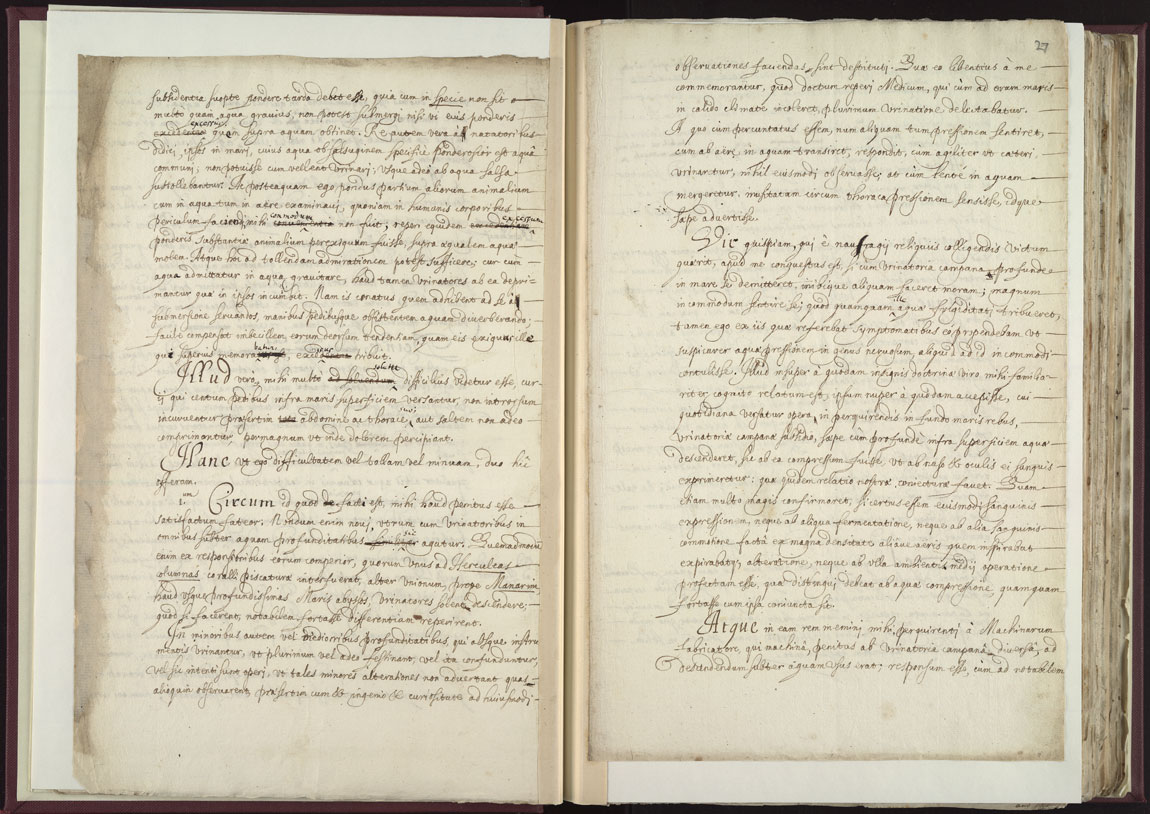 subsidentia suopte pondere tardo debet esse, quia cum in specie non sit
multo quam aqua gravius, non potest submergi nisi vi eius ponderis
excessus
quem supra aquam obtinet. Re autem vera a natatoribus
didici, ipsos in mari, cuius aqua ob salsuginem specificè ponderosior est aquâ
communi, non potuisse cum vellent urinari; usque adeo ab aqua salsa
sustollebantur. At posteaquam ego pondus partium aliorum animalium
cum in aqua tum in aëre examinavi, quoniam in humanis corporibus
commodum excessum
periculum facere mihi conveniens non fuit, reperi equidem
ponderis substantiæ animalium perexiguum fuisse, supra æqualem aquæ
molem. Atque hoc ad tollendam admirationem potest sufficere; cur cum
aqua admittatur in aqua gravitare, haud tamen Urinatores ab ea depri-
mantur quæ in ipsos incumbit. Nam is conatus quem adhibent ad se à
submersione servandos, manibus pedibusque obsistentem aquam diverberando
facile compensat imbecillem eorum deorsum tendentiam, quam eis exiguus ille
qui superius memoratus, tribuit.
solutu
Illud verò mihi multo ad solvendum difficilius videtur esse, cur
ij qui centum pedibus infra maris superficiem versantur, non introrsum
incurventur præsertim abdomine ac thorace, aut saltem non adeo
comprimantur, permagnum ut inde dolorem percipiant.
Hanc ut ego difficultatem vel tollam vel minuam, duo hic
afferam.
1.um Circum id quod facti est, mihi haud penitus esse
satisfactum fateor. Nondum enim novi, utrum cum Urinatoribus in
omnibus subter aquam profunditatibus agatur. Quemadmodum
enim ex responsoribus eorum comperior, quorum unus ad Herculeas
columnas coralli piscaturæ interfuerat, alter Unionum, prope Manarim
haud usque profundissimas Maris abyssos, Urinatores solent descendere;
quod si facerent, notabilem fortasse differentiam reperirent.
In minoribus autem vel mediocribus profunditatibus, qui absque instru-
mentis urinantur, ut plurimum vel adeo festinant, vel ita confunduntur,
vel sic intenti sunt operi, ut tales minores alterationes non advertant quas
alioquin observarent, præsertim cum & ingenio & curiositate ad huiusmodi
27
observationes faciendas sint destituti. Quæ eo libentius à me
commemorantur, quod doctum reperi Medicum, qui cùm ad oram maris
in calido climate incoleret, plurimum Urinatione delectabatur.
A quo cum percunctatus essem, num aliquam tum pressionem sentiret,
cum ab aëre in aquam transiret, respondit, cùm agiliter ut cæteri
urinaretur, nihil eiusmodi observasse; at cùm lentè in aquam
mergeretur, inusitatam circum thoraca pressionem sensisse, idque
sæpe advertisse.
Vir quispiam, qui è naufragij reliquiis colligendis victum
quærit, apud me conquestus est, si cum Urinatoria campana, profunde
in mare se demitteret, inibique aliquam faceret moram; magnum
ille
incommodum sentire se; quod quamquam aquæ frigiditati tribueret,
tamen ego ex iis quæ referebat symptomatibus expropendebam ut
suspicarer aquæ pressionem in genus nervosum, aliquid ad id incommodi
contulisse. Illud insuper à quodam insignis doctrinæ viro mihi familia-
riter cognito relatum est; ipsum nuper à quodam accepisse, cui
quotidiana versatur opera, in perquirendis in fundo maris rebus,
Urinatoriæ campanæ subsidio, sæpe cùm profunde infra superficiem aquæ
descenderet, sic ab ea compressum fuisse, ut ab naso & oculis ei sanguis
exprimeretur: quæ quidem relatio nostræ coniecturæ favet. Quam
etiam multo magis confirmaret, si certus essem eiusmodi sanguinis
expressionem, neque ab aliqua fermentatione, neque ab alia sanguinis
commotione factâ ex magna densitate aliâve aëris quem inspirabat
expirabatve alteratione, neque ab ulla ambientis medij operatione
profectam esse, quæ distingui debeat ab aquæ compressione quamquam
fortasse cum ipsa coniuncta sit.
Atque in eam rem memini, mihi perquirenti à Machinarum
fabricatore, qui machinâ, penitus ab Urinatoria campana diversâ, ad
descendendum subter aquam usus erat; responsum esse, cùm ad notabilem